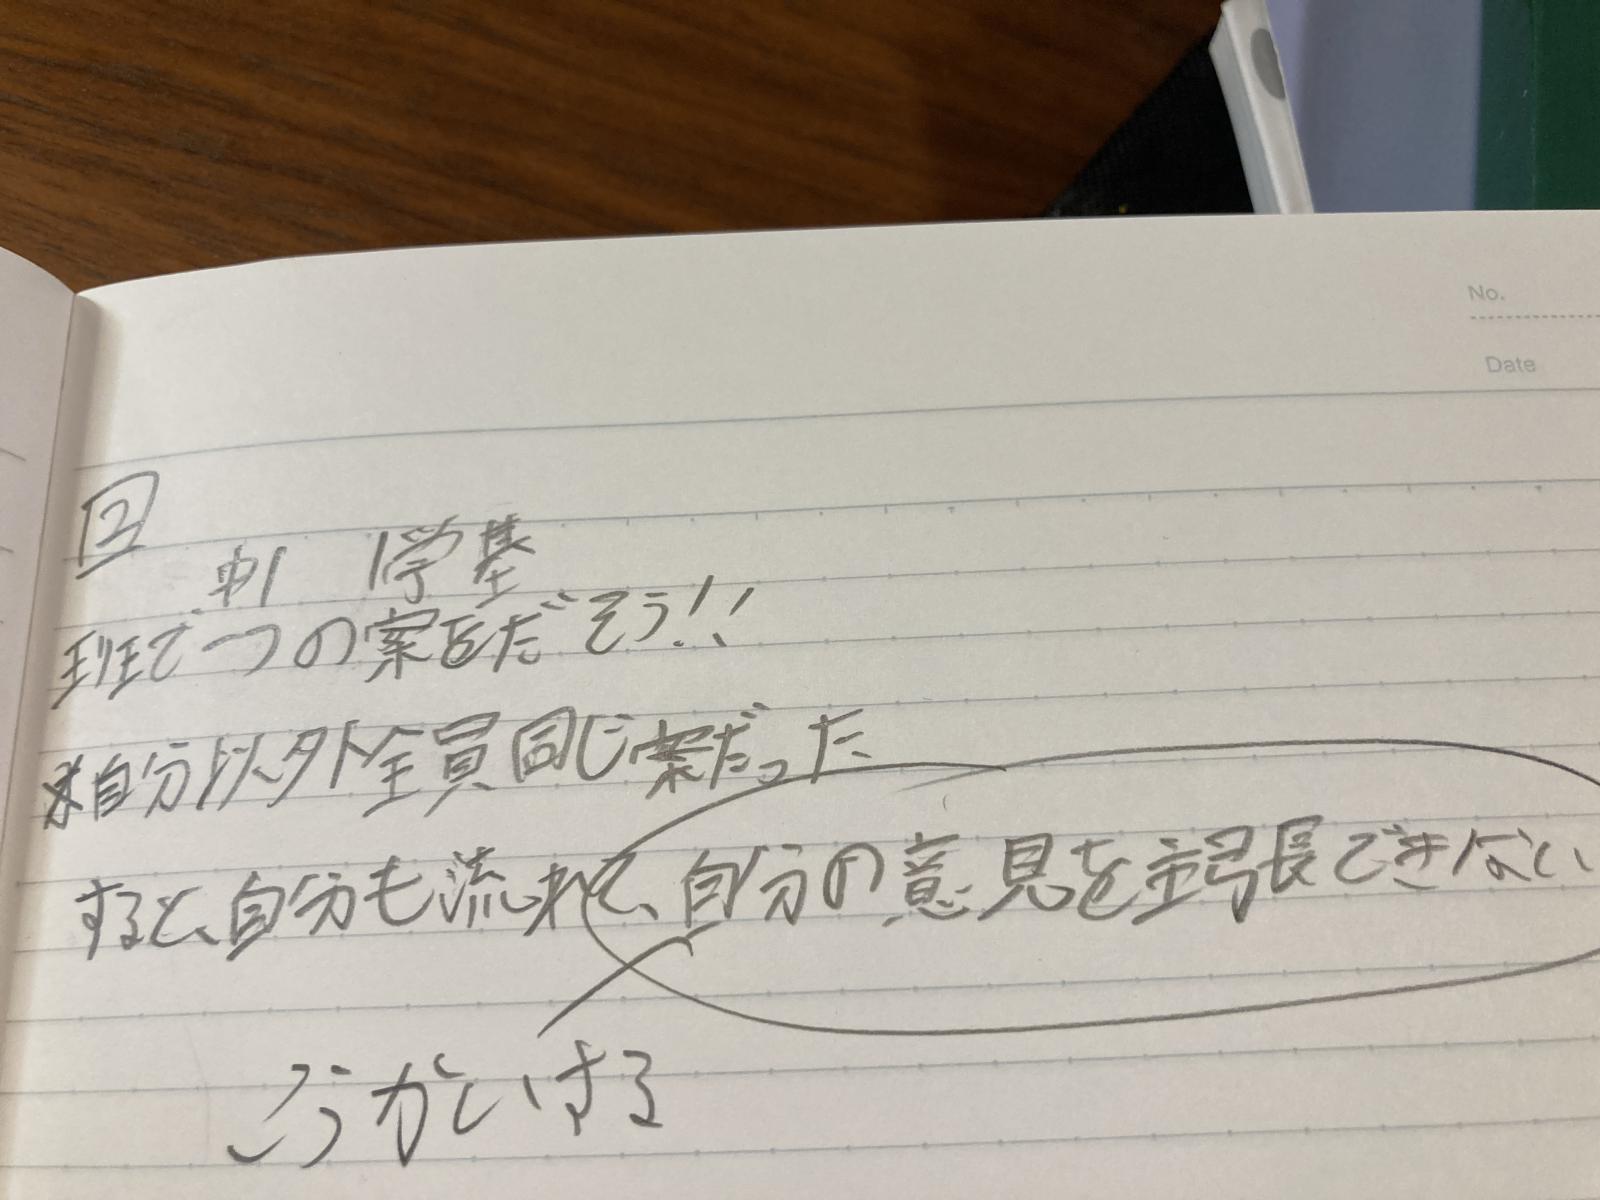 No.
Date
2
例 1学基
班で一つの案をだそう!!
自分以外全員同じ案だった
すると、自分も流れて、自分の意見を主張できない
こうかいする